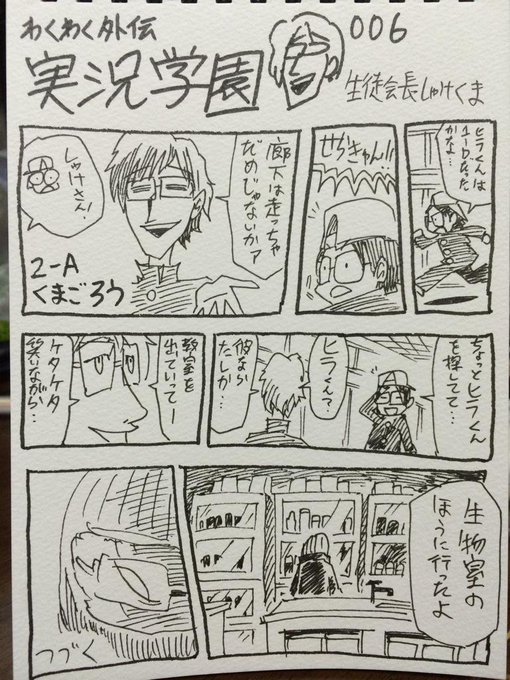 わくわく外伝
実況学園
006
生徒会長しゃけくま
ヒラくんは
1-Dだった
かなぁ…
せらきゃん!!
廊下は走っちゃ
だめじゃないかァ
しゃけさん!
2-A
くまごろう
ちょっとヒラくん
を探してて…
ヒラくん?
彼なら
たしか…
教室を
出ていてー
ケタケタ
笑いながら…
生物室の
ほうに行ったよ
つづく